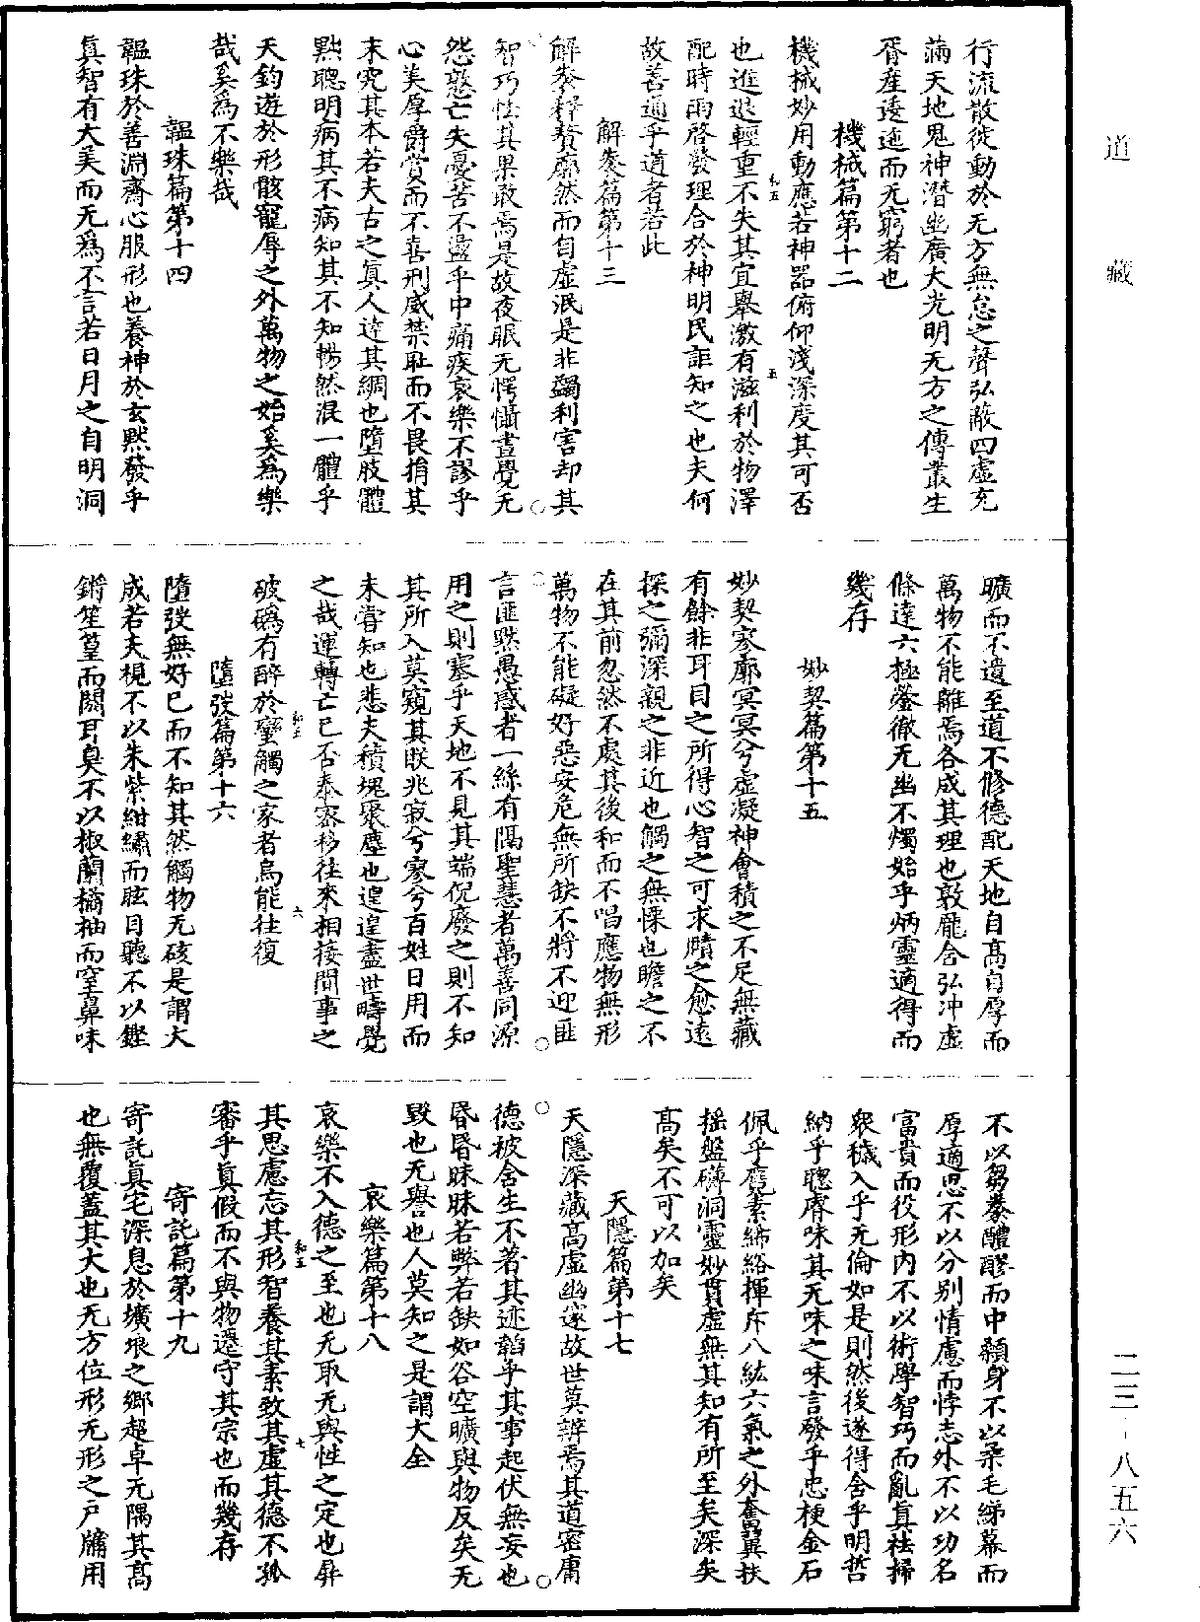 道藏
二三-八五六
行流散徙動於无方無怠之聲弘蔽四虛充
滿天地鬼神潛幽廣大光明无方之傳叢生
胥產逶迤而无窮者也
機械篇第十二
機械妙用動應若神器俯仰淺深度其可否
也進退輕重不失其宜舉激有滋利於物澤
配時雨啓發理合於神明民詎知之也夫何
故善通乎道者若此
解袠篇第十三
解袠釋贅廓然而自虛泯是非蠲利害却其
智巧性其果敢焉是故夜眠无愕懾晝覺无
怨憝亡失憂苦不盪乎中痛疾哀樂不謬乎
心美厚爵賞而不喜刑威禁耻而不畏捐其
末究其本若夫古之眞人達其綢也墮肢體
黜聰明病其不病知其不知暢然混一體乎
天鈞遊於形骸寵辱之外萬物之始奚爲樂
哉奚爲不樂哉
韞珠篇第十四
韞珠於善淵齋心服形也養神於玄默發乎
眞智有大美而无爲不言若日月之自明洞
曠而不遺至道不修德配天地自高自厚而
萬物不能離焉各成其理也敦龐合弘冲虛
條達六極瑩徹无幽不燭始乎炳靈適得而
幾存
妙契篇第十五
妙契寥廓冥冥兮虛凝神會積之不足無藏
有餘非耳目之所得心智之可求𥉙之愈遠
探之彌深親之非近也觸之無慄也瞻之不
在其前忽然不處其後和而不唱應物無形
萬物不能礙好惡安危無所缺不將不迎匪
言匪默愚惑者一絲有隔聖慧者萬善同源
用之則塞乎天地不見其端倪廢之則不知
其所入莫窺其眹兆寂兮寥兮百姓日用而
未嘗知也悲夫積塊聚塵也遑遑盡世疇覺
之哉運轉亡已否泰密移往來相接間事之
破碼有醉於蠻觸之家者烏能往復
隳弢篇第十六
隳弢無好已而不知其然觸物无硋是謂大
成若夫視不以朱紫紺繡而眩目聽不以鏗
鏘笙篁而闕耳臭不以椒蘭橘柚而窒鼻味
不以芻豢醴醪而中顙身不以柔毛綈幕而
厚適思不以分別情慮而悖志外不以功名
富貴而役形內不以術學智巧而亂眞袪掃
衆穢入乎无倫如是則然後遂得舍乎明哲
納乎聰膚味其无味之味言發乎忠梗金石
佩乎麁素締綌揮斥八紘六氣之外奮翼扶
搖盤礴洞靈妙貫虛無其知有所至矣深矣
高矣不可以加矣
天隱篇第十七
天隱深藏高虛幽邃故世莫辨焉其道密庸
德被含生不著其迹韜乎其事起伏無妄也
昏昏昧昧若弊若缺如谷空曠與物反矣无
毀也无譽也人莫知之是謂大全
哀樂篇第十八
哀樂不入德之至也无取无與性之定也屏
其思慮忘其形智養其素致其虛其德不孤
審乎眞假而不與物遷守其宗也而幾存
寄託篇第十九
寄託眞宅深息於壙埌之鄉超卓无隅其高
也無覆蓋其大也无方位形无形之戶牖用